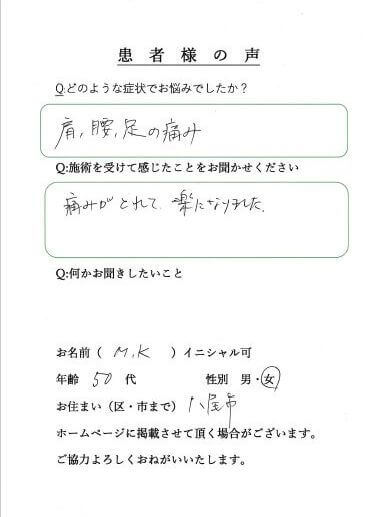 患者様の声
Q:どのような症状でお悩みでしたか？
肩,腰,足の痛み
Q:施術を受けて感じたことをお聞かせください
痛みがとれて、楽になりました。
Q:何かお聞きしたいこと
お名前（ M.K ）イニシャル可
年齢 50 代 性別 男・女
お住まい（区・市まで） 八尾市
ホームページに掲載させて頂く場合がございます。
ご協力よろしくおねがいいたします。